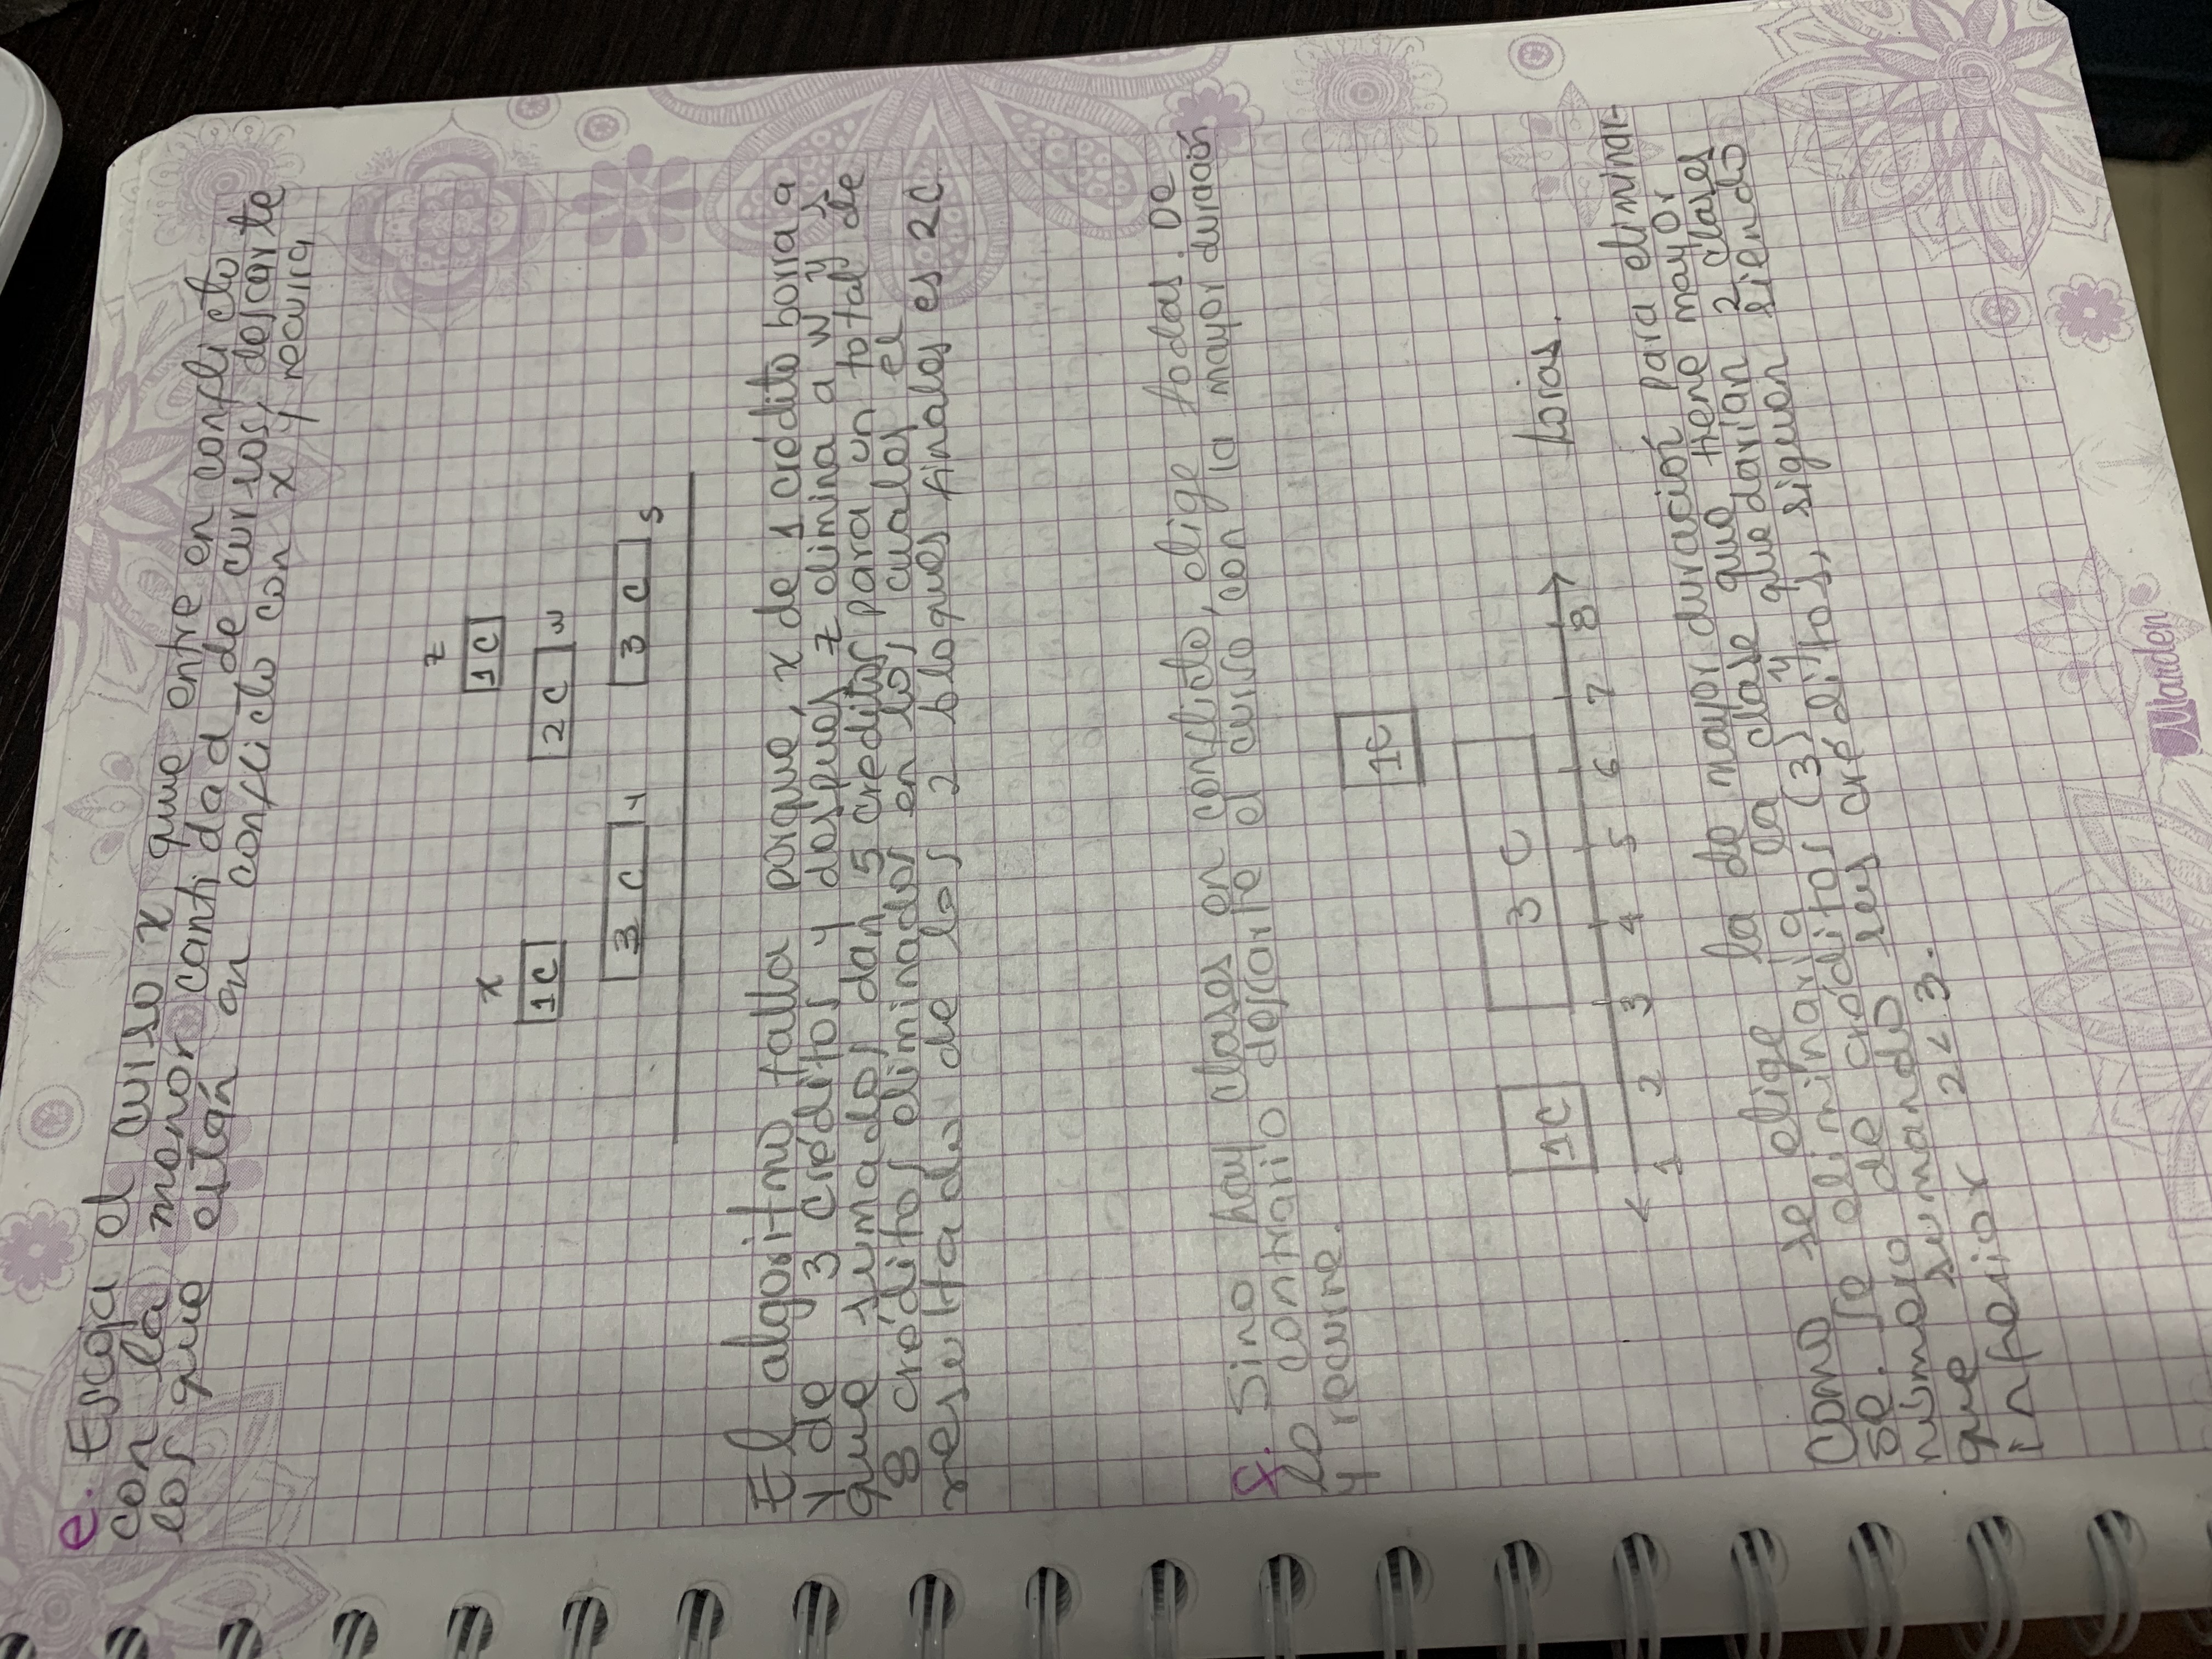 e. Escoja el curso x que entre en conflicto
con la menor cantidad de cursos, descarte
los que están en conflicto con x y recurra
z
1 C
x
1 C
2 C w
3 C y
3 C s
El algoritmo falla porque, x de 1 crédito borra a
y de 3 créditos y después z elimina a w y s
que sumados dan 5 creditos para un total de
8 créditos eliminados en los cuales el
resultado de los 2 bloques finales es 2C
f. Sino hay clases en conflicto, elige todas. De
lo contrario descarte el curso con la mayor duración
y recurre.
1C
3 C
1C
horas.
1 2 3 4 5 6 7 8
Como se elige la de mayor duración para eliminar-
se. se eliminaria la clase que tiene mayor
número de créditos (3) y quedarían 2 clases
que sumando sus créditos, siguen siendo
inferior 2 < 3.
Marden